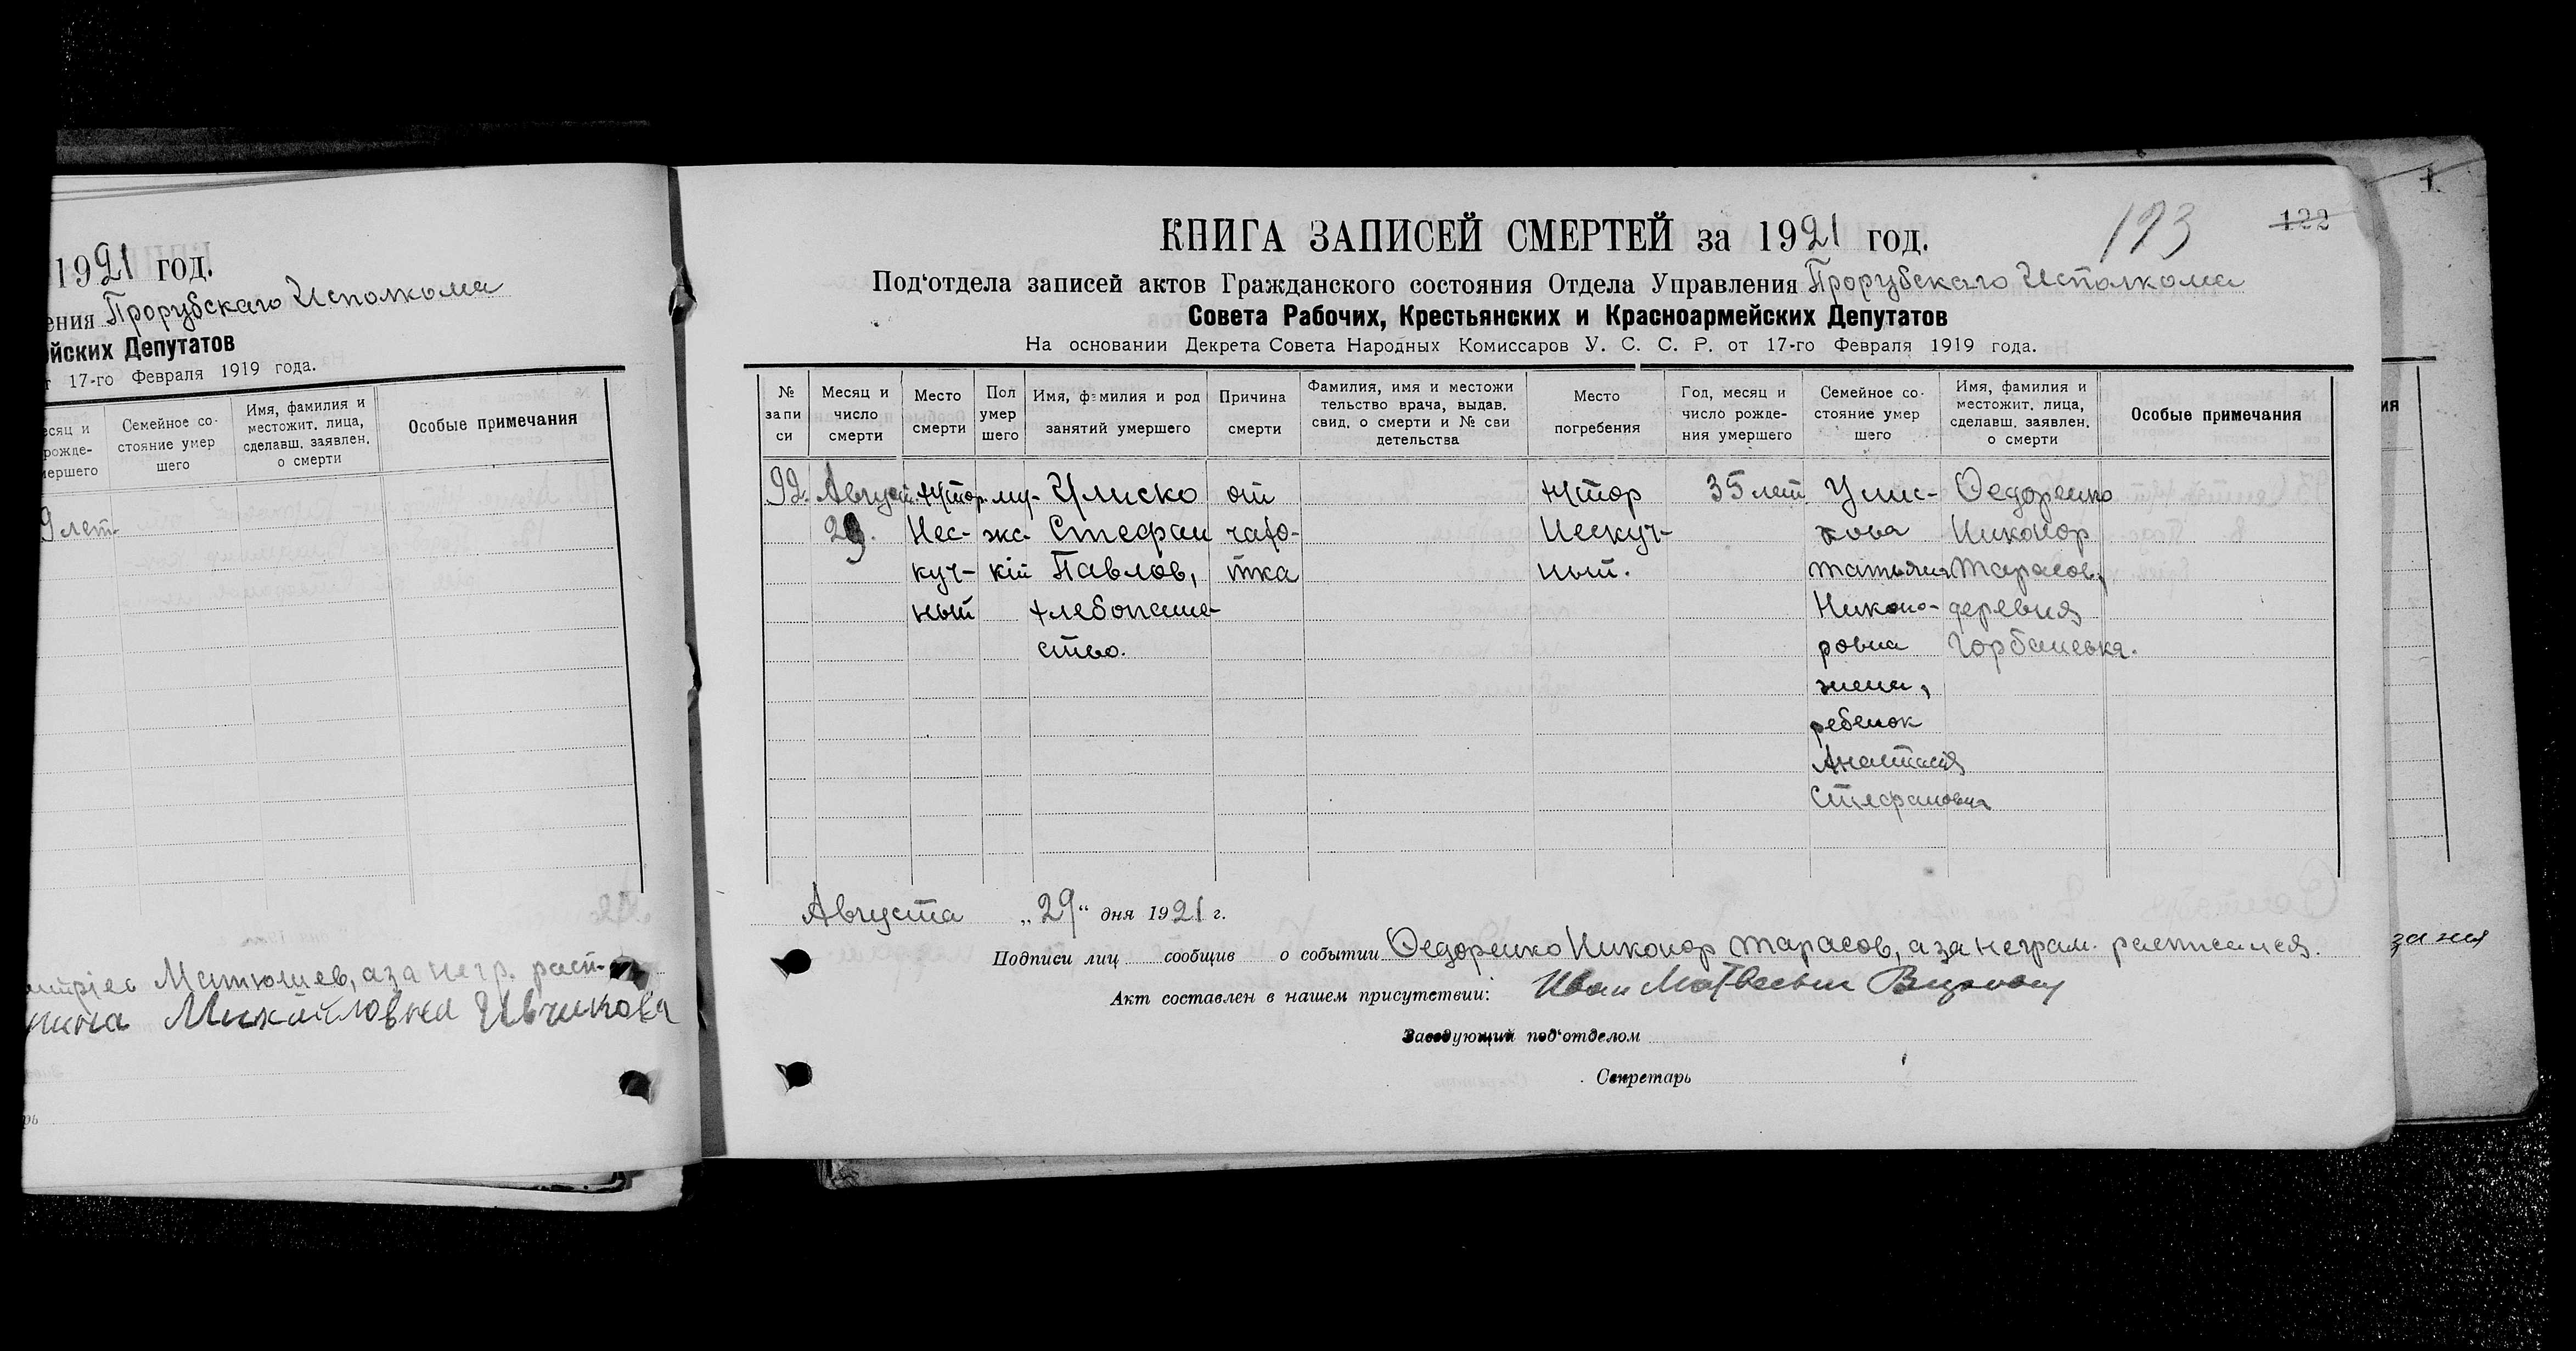 1921 год.
ения Прорубскаго Исполкома
йских Депутатов
т 17-го Февраля 1919 года.
есяц и рожде- мершего
Семейное со- стояние умер шего
Имя, фамилия и местожит. лица, сделавш. заявлен. о смерти
Особые примечания
9 лет.
Матюшев, а за негр. расп-
Михайловна
рь
КНИГА ЗАПИСЕЙ СМЕРТЕЙ за 1921 год.
193
122
1
Под‘отдела записей актов Гражданского состояния Отдела Управления Прорубскаго Исполкома
Совета Рабочих, Крестьянских и Красноармейских Депутатов
На основании Декрета Совета Народных Комиссаров У. С. С. Р. от 17-го Февраля 1919 года.
№ запи си
Месяц и число смерти
Место смерти
Пол умер шего
Имя, фамилия и род занятий умершего
Причина смерти
Фамилия, имя и местожи тельство врача, выдав. свид. о смерти и № сви детельства
Место погребения
Год, месяц и число рожде- ния умершего
Семейное со- стояние умер шего
Имя, фамилия и местожит. лица, сделавш. заявлен. о смерти
Особые примечания
ия
92. Август. Хутор. му- Улиско от Хутор 35 лет. Улис- Федоренко
29. Нес- жс- Стефан чахо- Нескуч- кова Никонор
куч- кiй Павлов, тка ный. Татьяна Тарасов,
ный хлебопаше- Никоно- деревня
ство. ровна Горбаневка.
жена,
ребенок
Анастасiя
Стефановна
Августа „29“ дня 1921 г.
Подписи лиц сообщив о событии Федоренко Никонор Тарасов, а за неграм. расписался.
за ния
Акт составлен в нашем присутствии: Иван Матвеевич
Заведующий под‘отделом
Секретарь